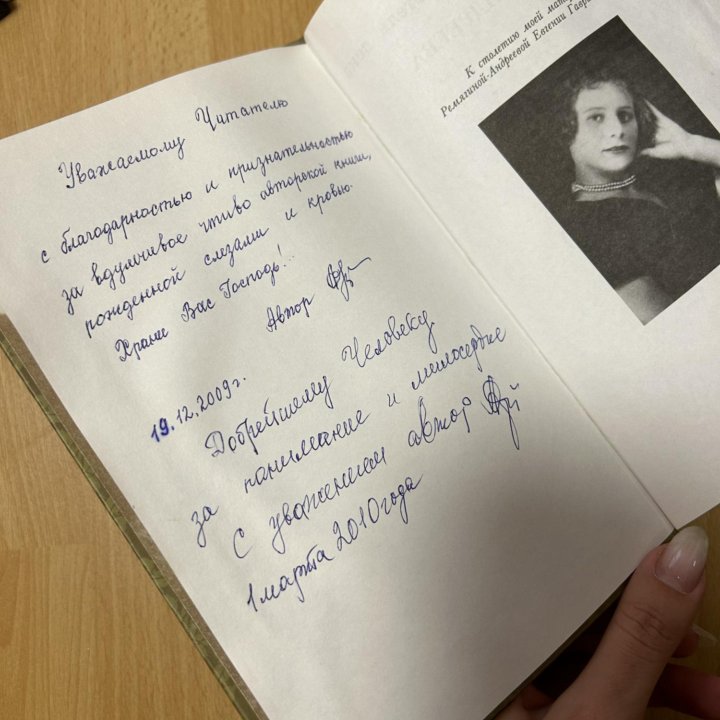 Уважаемому Читателю
с благодарностью и признательностью
за вдумчивое чтиво авторской книги,
рожденной слезами и кровью.
Храни Вас Господь!..
Автор
19.12.2009г.
Добрейшему Человеку
за понимание и милосердие
С уважением автор
1 марта 2010 года
К столетию моей
Ремягиной-Андреевой Евгении